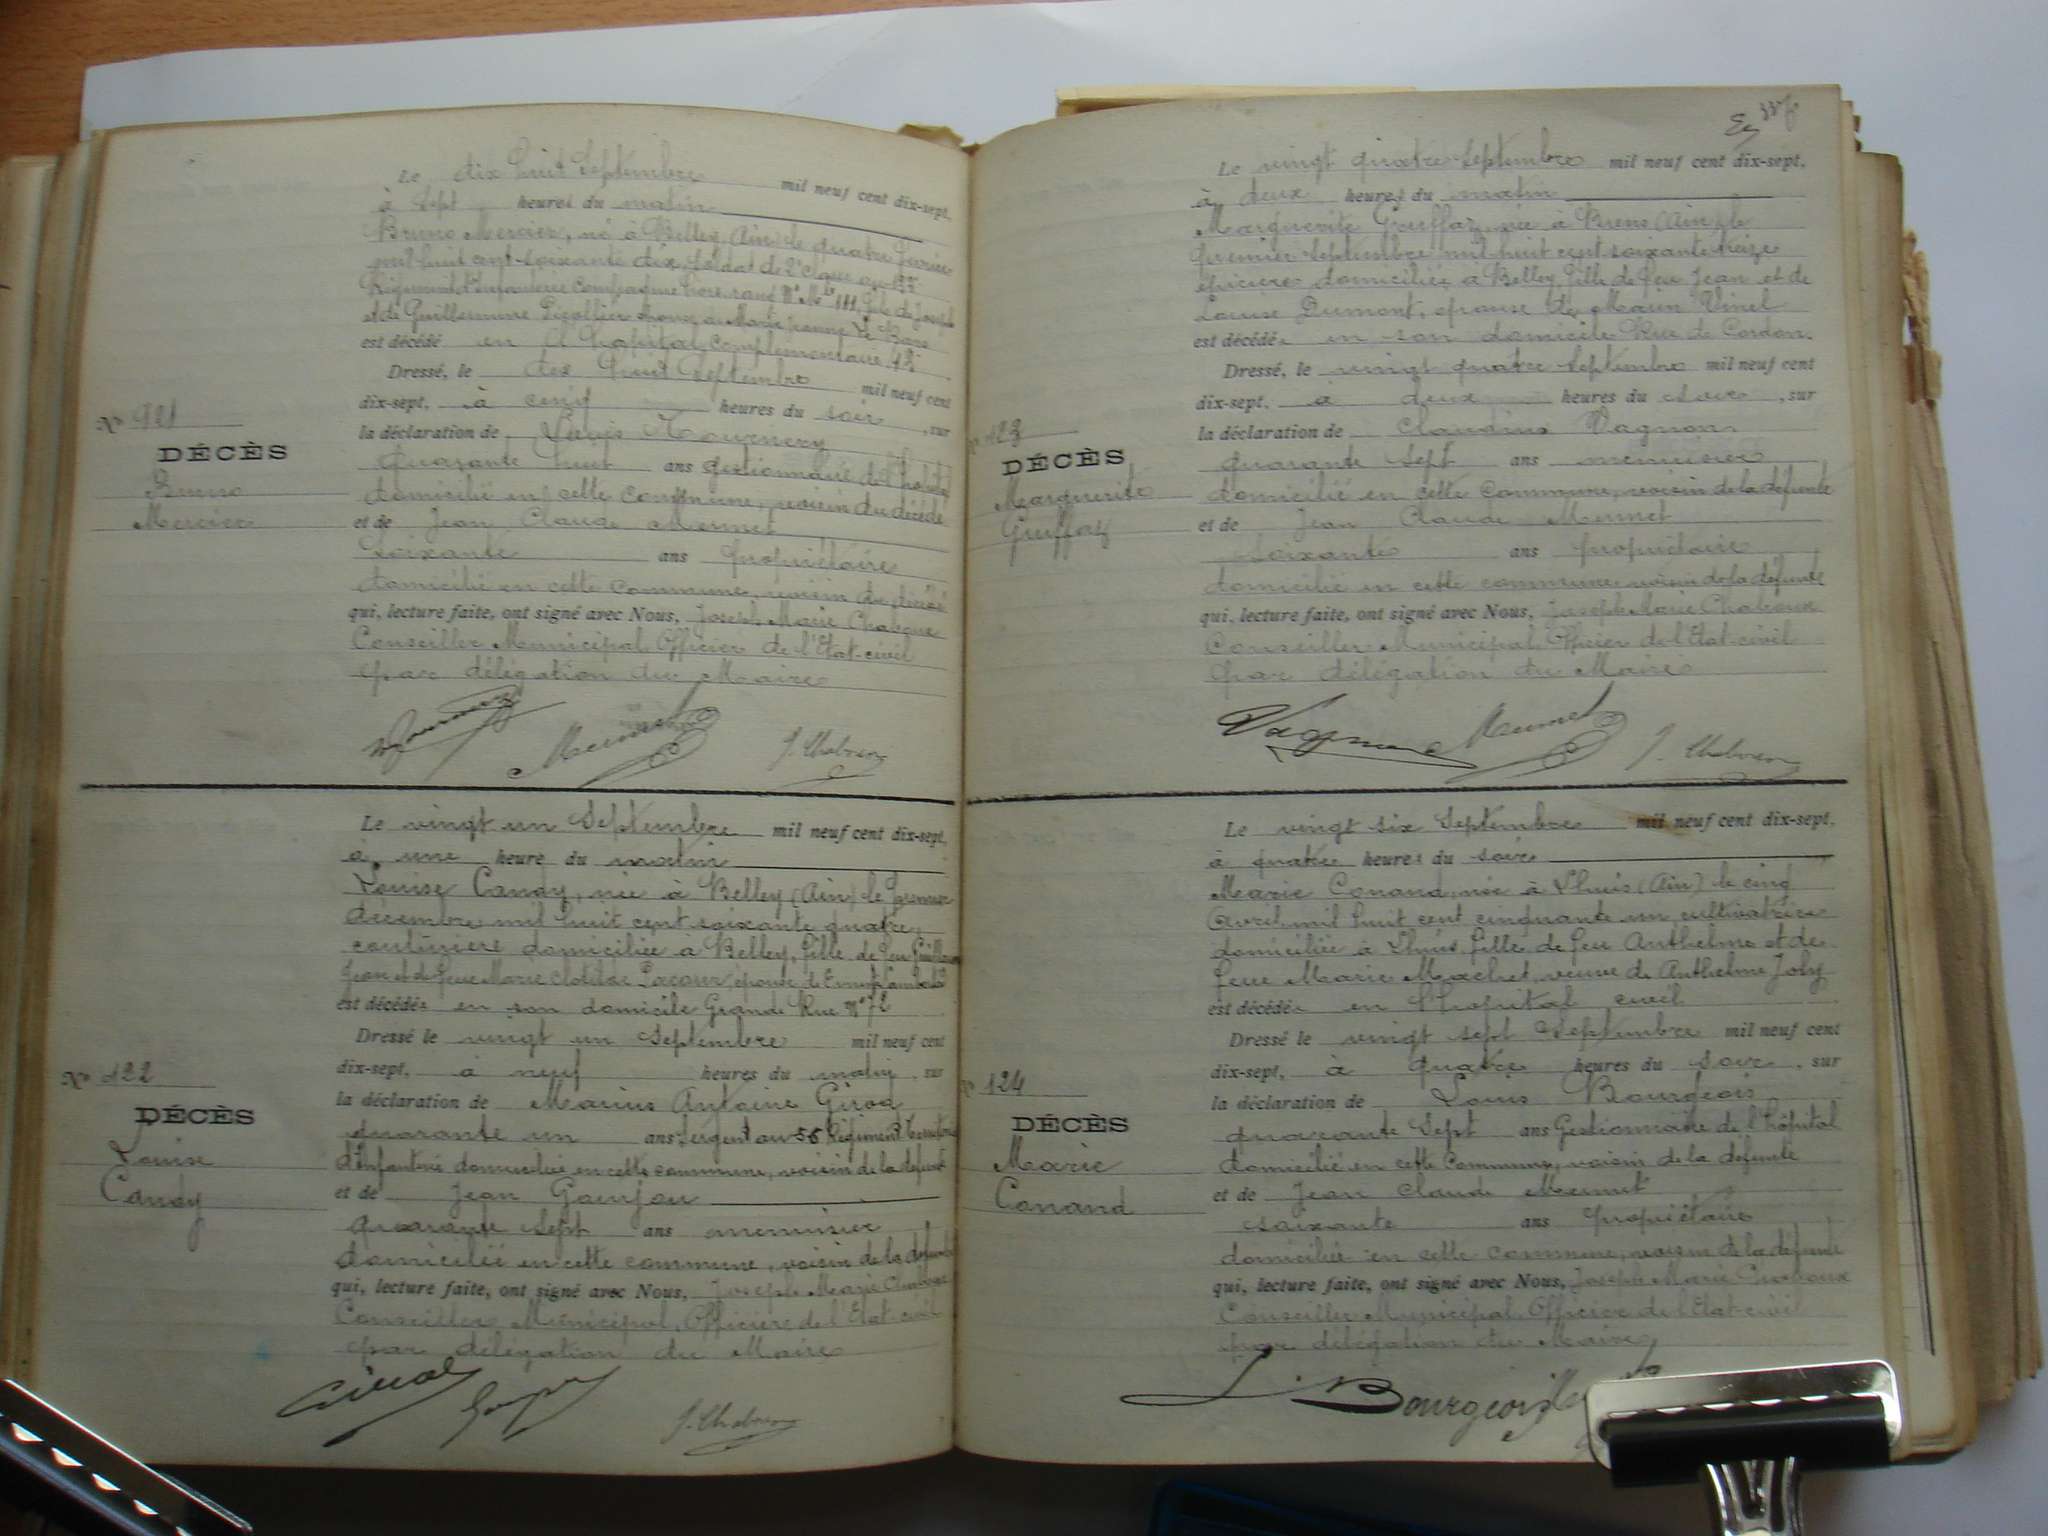 Le dix huit Septembre mil neuf cent dix-sept,
à Sept heures du matin
Bruno Mercier, né à Belley (Ain) le quatre
mil huit cent soixante dix, soldat de 2e classe au
Régiment d'Infanterie Compagnie hors rang No Mle 111, fils de Joseph
et de Guillemine époux de Marie Jeanne Le
est décédé en l'hopital complémentaire
Dressé, le dix huit Septembre mil neuf cent
dix-sept, à cinq heures du soir, sur
No 121
la déclaration de Louis
DÉCÈS
quarante huit ans gestionnaire de l'hopital
Bruno
domicilié en cette commune, voisin du décédé
Mercier
et de Jean Claude Mermet
soixante ans propriétaire
domicilié en cette commune, voisin du décédé
qui, lecture faite, ont signé avec Nous, Joseph Marie Chaboux
Conseiller Municipal Officier de l'Etat-civil
par délégation du Maire
Mermet J. Chaboux
Le vingt un Septembre mil neuf cent dix-sept,
à une heure du matin
Louise Candy, née à Belley (Ain) le premier
décembre mil huit cent soixante quatre,
couturière domiciliée à Belley, fille de feu Guillaume
Jean et de feue Marie Clotilde épouse de
est décédée en son domicile Grande Rue No 72
Dressé le vingt un Septembre mil neuf cent
dix-sept, à neuf heures du matin, sur
No 122
la déclaration de Marius Antoine Girod
DÉCÈS
quarante un ans Sergent au 56 Régiment Territorial
Louise
d'Infanterie domicilié en cette commune, voisin de la défunte
Candy
et de Jean Goinjou
quarante sept ans menuisier
domicilié en cette commune, voisin de la défunte
qui, lecture faite, ont signé avec Nous, Joseph Marie Chaboux
Conseiller Municipal, Officier de l'Etat-civil
par délégation du Maire
J. Chaboux
Le vingt quatre Septembre mil neuf cent dix-sept,
à deux heures du matin
Marguerite Greffaz, née à Brens (Ain) le
premier Septembre mil huit cent soixante treize
épicière domiciliée à Belley, fille de feu Jean et de
Louise Dumont, épouse de Marin Vinel
est décédée en son domicile Rue de Cordon.
Dressé, le vingt quatre Septembre mil neuf cent
dix-sept, à deux heures du soir, sur
No 123
la déclaration de Claudius Vagnon
DÉCÈS
quarante sept ans menuisier
Marguerite
domicilié en cette commune, voisin de la défunte
Greffaz
et de Jean Claude Mermet
soixante ans propriétaire
domicilié en cette commune, voisin de la défunte
qui, lecture faite, ont signé avec Nous, Joseph Marie Chaboux
Conseiller Municipal, Officier de l'Etat-civil
par délégation du Maire
Vagnon Mermet J. Chaboux
Le vingt six Septembre mil neuf cent dix-sept,
à quatre heures du soir
Marie Conand, née à Lhuis (Ain) le cinq
Avril mil huit cent cinquante un, cultivatrice
domiciliée à Lhuis, fille de feu Anthelme et de
feue Marie Machet, veuve de Anthelme Joly
est décédée en l'hopital civil
Dressé le vingt sept Septembre mil neuf cent
dix-sept, à quatre heures du soir, sur
No 124
la déclaration de Louis Bourgeois
DÉCÈS
quarante sept ans Gestionnaire de l'hôpital
Marie
domicilié en cette commune, voisin de la défunte
Conand
et de Jean Claude Mermet
soixante ans propriétaire
domicilié en cette commune, voisin de la défunte
qui, lecture faite, ont signé avec Nous, Joseph Marie Chaboux
Conseiller Municipal, Officier de l'Etat-civil
par délégation du Maire
L. Bourgeois